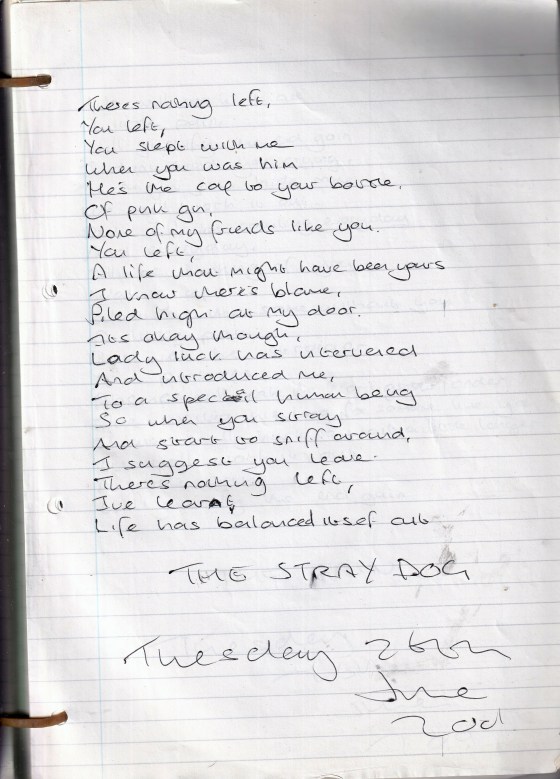 Theres nothing left,
You left,
You slept with me
When you was him
He's the cap to your bottle,
Of pink gin,
None of my friends like you.
You left,
A life that might have been yours
I know there's blame,
Piled high at my door.
Its okay though,
Lady luck has intervened
And introduced me,
To a special human being
So when you stray
And start to sniff around,
I suggest you leave.
There's nothing left,
I've learnt,
Life has balanced itsef out
THE STRAY DOG
Tuesday 26th
June
2001